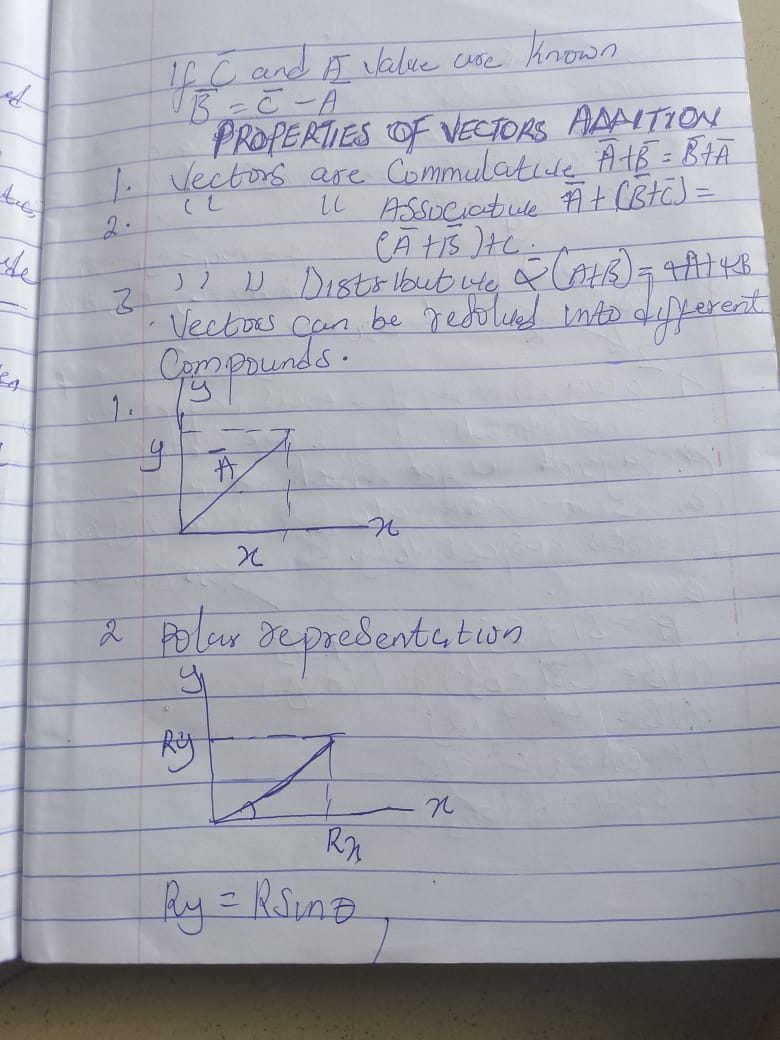 If C̄ and Ā value are known
B̄ = C̄ - A
PROPERTIES OF VECTORS ADDITION
1. Vectors are Commulative Ā+B̄ = B̄+Ā
2. " " Associative Ā+(B̄+C̄) =
(Ā+B̄)+C.
3 " " Distributive ᾱ(A+B) = 4A+4B
. Vectors can be resolved into different
Compounds.
1.
y
y
Ā
x
x
2 Polar representation
y
Ry
x
Rx
Ry = RSinθ